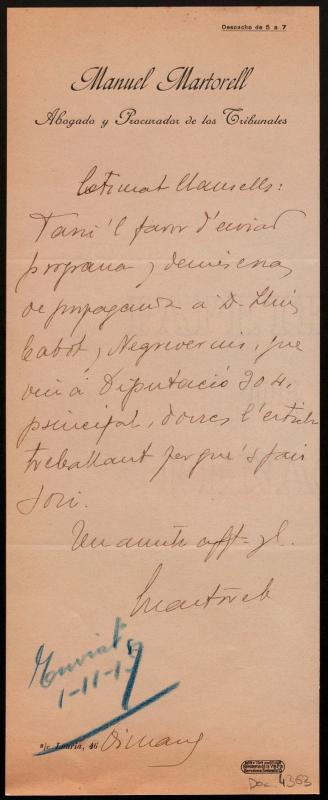 Despacho de 5 a 7
Manuel Martorell
Abogado y Procurador de los Tribunales
Estimat Mansells:
Tani 'l favor d'enviar
programa y demés
de propaganda a D. Lluis
Cabot y Negrevernis, que
viu á Diputació 304,
principal, donçs l'estich
treballant per que's fasi
soci.
Un amich afft. y
Martorell
Enviat
1-11-1
a/c. Lauria, 46
Dimars
Doc 4363